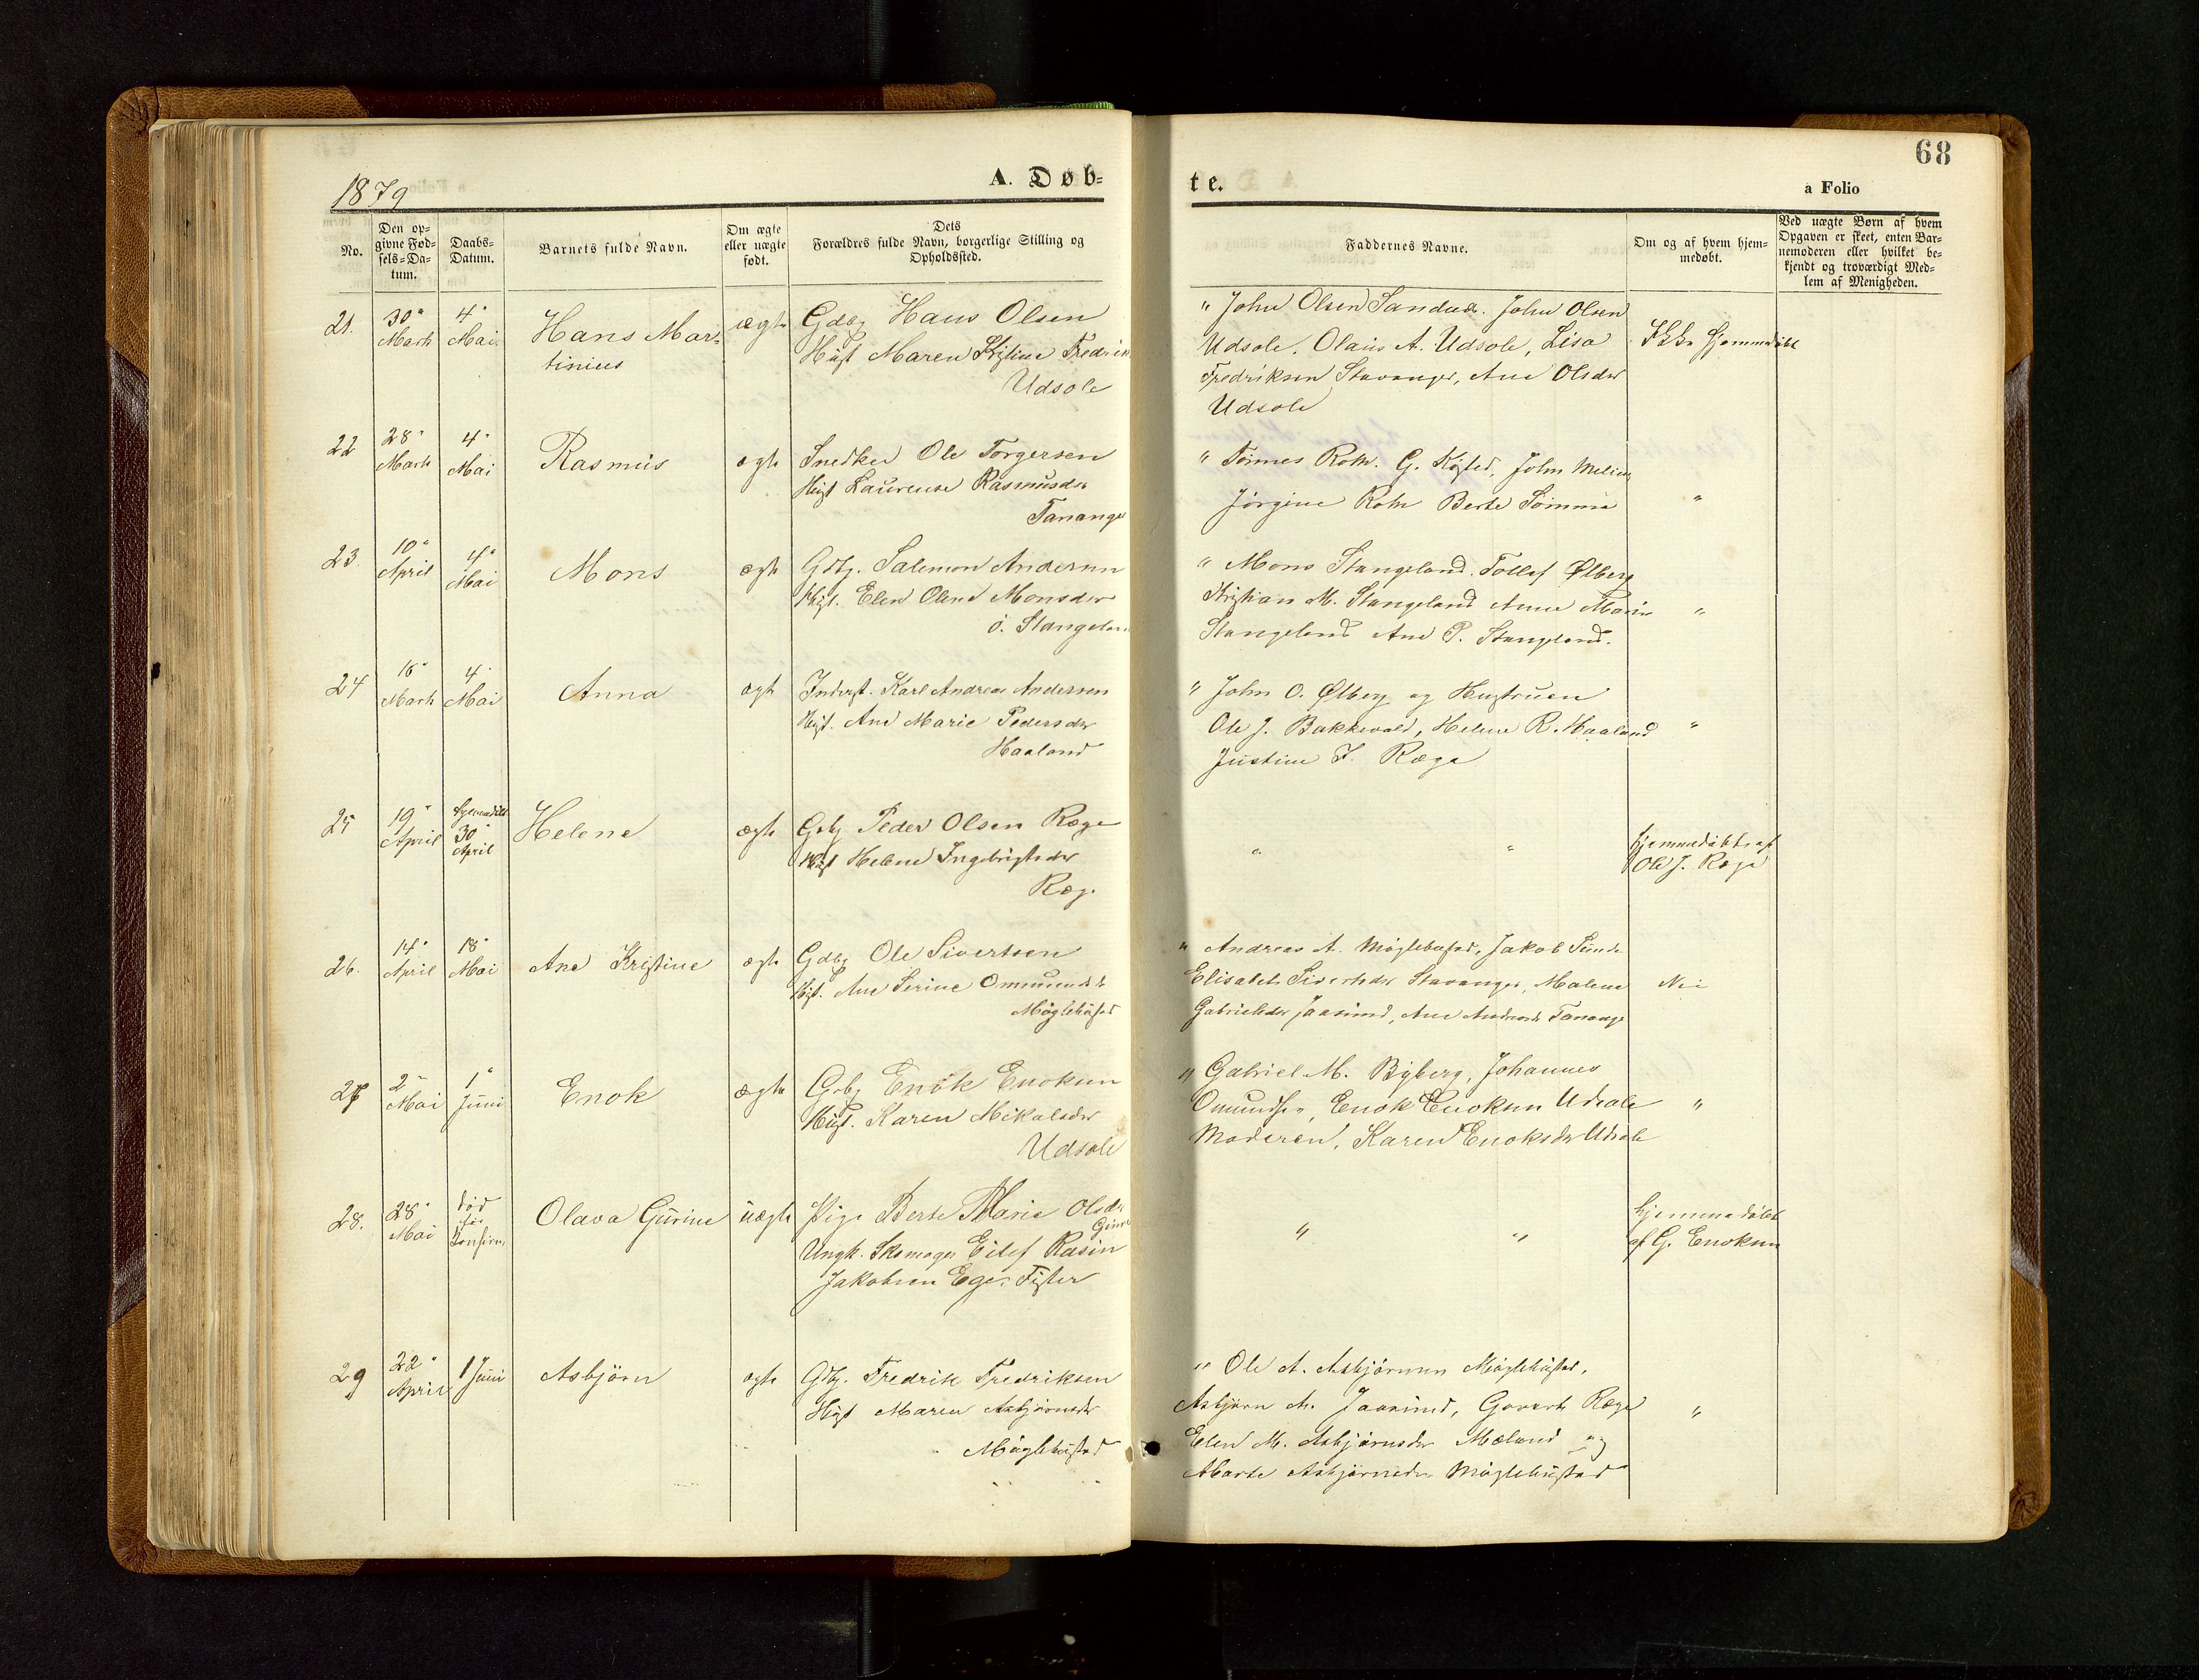 68
1879
A. Døb-
te.
a Folio
No.
Den op-
givne Fød-
sels-Da-
tum.
Daabs-
Datum.
Barnets fulde Navn.
Om ægte
eller uægte
født.
Dets
Forældres fulde Navn, borgerlige Stilling og
Opholdssted.
Faddernes Navne.
Om og af hvem hjem-
medøbt.
Ved uægte Børn af hvem
Opgaven er skeet, enten Bar-
nemoderen eller hvilket be-
kjendt og troværdigt Med-
lem af Menigheden.
21. 30" Marts 4" Mai
Hans Mar-
tinius
ægte
Gdbg Hans Olsen
Hust Maren Kristine Fredrik
Udsole
" John Olsen Sandnæs. John Olsen
Udsole, Olaus A. Udsole, Lisa
Fredriksen Stavanger, Ane Olsdr
Udsole
Ikke hjemmedöbt
22 28" Marts 4" Mai
Rasmus
ægte
Snedker Ole Torgersen
Hust Laurense Rasmusdr
Tananger
" Tönnes Rott. G. Kysted, John Meling
Jörgine Rott Berte Sömme
"
23. 10" April 4" Mai
Mons
ægte
Gdbg. Salemon Andersen
Hust. Elen Oline Monsdr
ö. Stangeland
" Mons Stangeland. Tollef Ølberg
Kristian M. Stangeland Anne Marie
Stangeland Ane P. Stangeland.
"
24 16" Marts 4" Mai
Anna
ægte
Inderst. Karl Andreas Andersen
Hust. Ane Marie Pedersdr
Haaland
" John O. Ølberg og Hustruen
Ole J. Bakkevold, Helene R. Haaland
Justine I. Ræge
"
25 19" April hjemmedöbt 30" April
Helene
ægte
Gbg Peder Olsen Ræge
Hust Helene Ingebrigtsdr
Ræge
" "
hjemmedöbt af
Ole J. Ræge
26. 14" April 18" Mai
Ane Kristine
ægte
Gdbg Ole Sivertsen
Hust. Ane Serine Ommundsdr
Möglebustad
" Andreas A. Möglebustad, Jakob Sunde
Elisabet Sivertsdr Stavanger, Malene
Gabrielsdr Jaasund, Ane Andreasdr Tananger
Nei
27 2" Mai 1" Juni
Enok
ægte
Gbg Enok Enoksen
Hust. Karen Mikalsdr
Udsole
" Gabriel M. Byberg, Johannes
Omundsen, Enok Enoksen Udsole
Moderen, Karen Enoksdr Udsole
"
28. 28" Mai död för Konfirm
Olava Gurine
uægte
Pige Berte Marie Olsdr
Ungk. Skomager Eilef Rasin
Jakobsen Eges. Fister
" "
hjemmedöbt
af G. Enoksen
29 22" April 1 Juni
Asbjörn
ægte
Gdbg. Fredrik Fredriksen
Hust Maren Asbjörnsdr
Möglebustad
" Ole A. Asbjörnsen Möglebustad,
Asbjörn A. Jaasund, Govert Ræge
Elen M. Asbjörnsdr Mæland og
Marte Asbjörnsdr Möglebustad
"